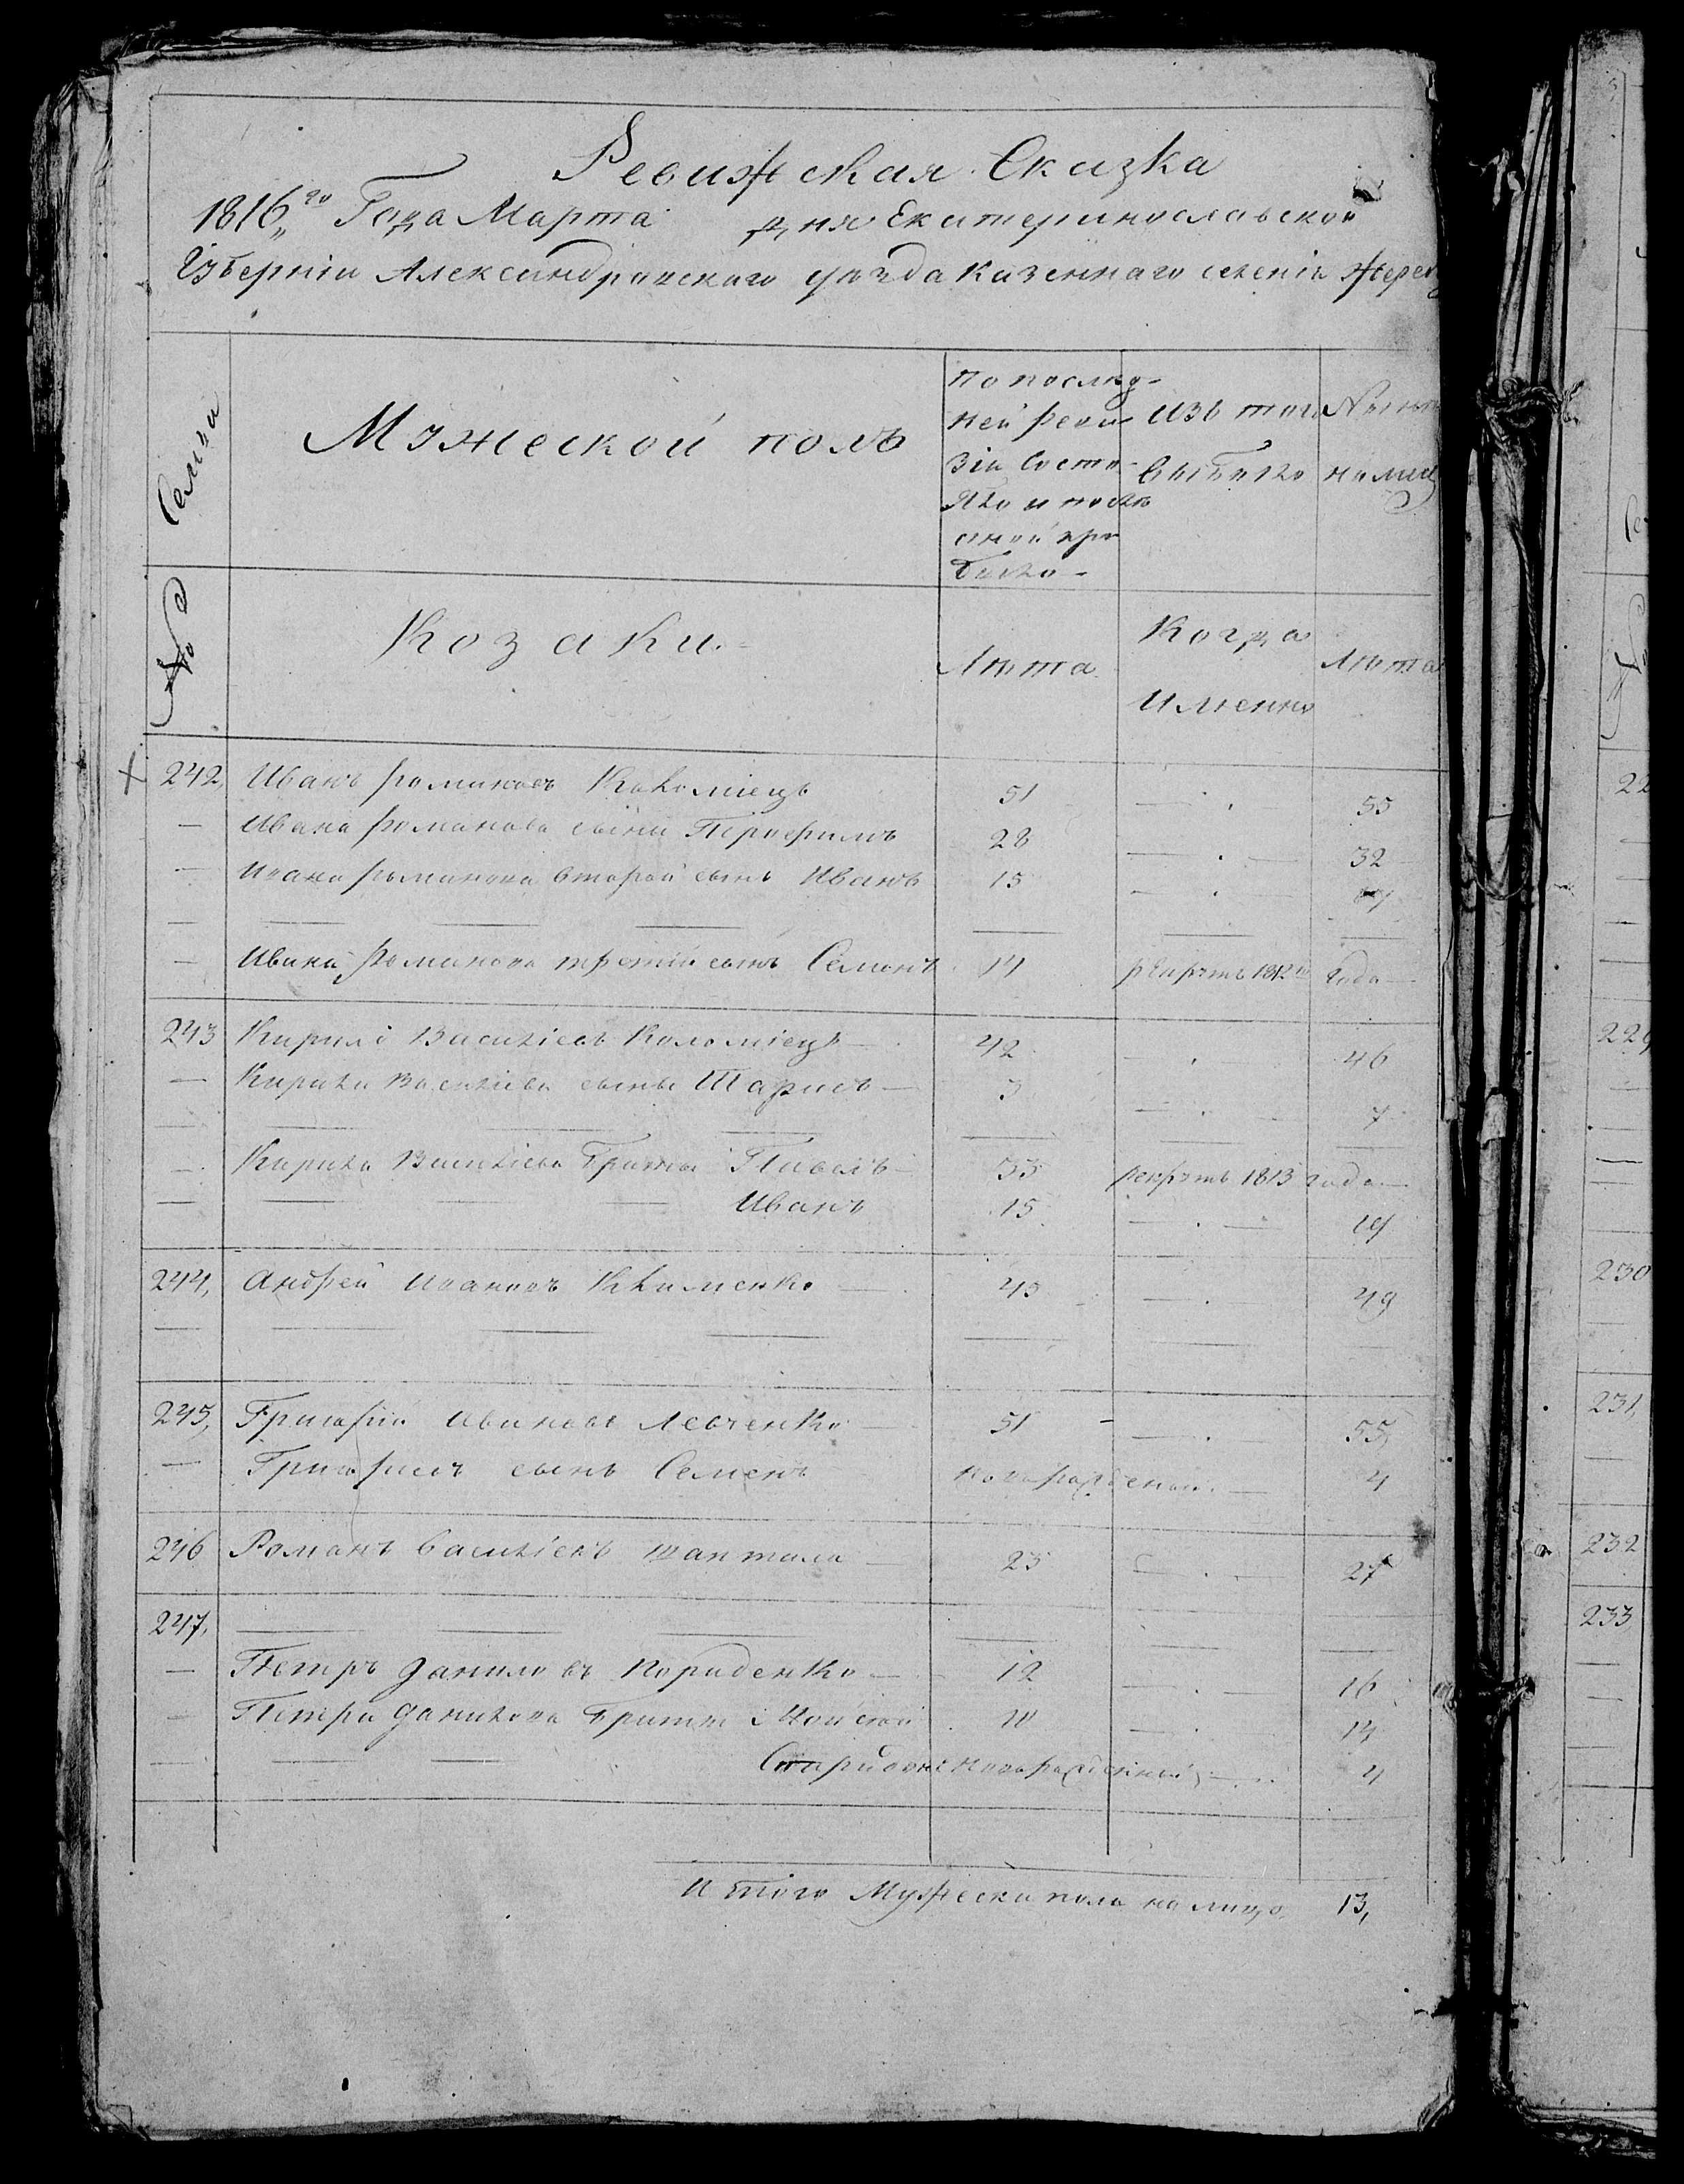 Ревижская Сказка
1816го Года Марта дня Екатеринославской
Губернiи Александровскаго уезда Казеннаго селенiя Жереб
Семьи
Мужеской полъ
по послед-
ней реви-
зiи Состо-
яло и после
оной при-
было-
Изъ того
выбыло
Ныне
на лице
№
Козаки
Лета
Когда
Именно
Лета
242, Иванъ Романовъ Коломiецъ 51 55
— Ивана Романова сыни 28 32
— Ивана Романова второй сынъ Иванъ 15
— Ивана Романова третiй сынъ Семенъ 14 рекрутъ 1812го года
243 Кирило Василiевъ Коломiецъ 42 46
— Кирила Василiева сынъ Тарасъ 3 7
— Кирила Василiева братья Павелъ 33 рекрутъ 1813 года
— Иванъ 15 19
244, Андрей Ивановъ Клименко 45 49
245, Григорiй Ивановъ Левченко 51 55,
— Григорiевъ сынъ Семенъ новорожденой 4
246 Романъ Василiевъ 23 27
247,
— Петръ Даниловъ 12 16
— Петра Данилова братья Мойсей 10 14
— Спиридонъ новорожденный 4
Итого Мужеска пола на лицо 13,
22
229
230
231,
232
233